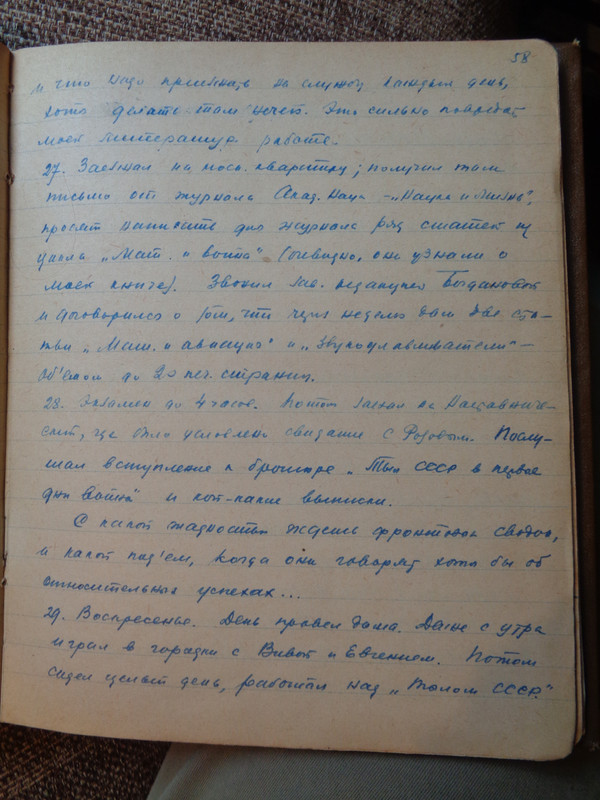 58
и что надо приезжать на службу каждый день,
хотя делать там нечего. Это сильно повредит
моей литературной работе.
27. Заезжал на моск. квартиру; получил там
письмо от журнала Акад. Наук – „Наука и Жизнь",
просят написать для журнала ряд статей из
цикла „Мат. и война" (очевидно, они узнали о
моей книге). Звонил зав. редакцией Богдановой
и договорился о том, что через неделю дам две ста-
тьи „Мат. и авиация" и „Звукоулавливатели" –
об'емом до 20 печ. страниц.
28. Экзамен до 4 часов. Потом заехал на Наставниче-
ский, где было условлено свидание с Розовым. Послу-
шал вступление к брошюре „Тыл СССР в первые
дни войны" и кой-какие выписки.
С какой жадностью ждешь фронтовых сводок,
и какой под'ем, когда они говорят хотя бы об
относительных успехах...
29. Воскресенье. День провел дома. Даже с утра
играл в городки с Вивой и Евгением. Потом
сидел целый день, работал над „Тылом СССР."